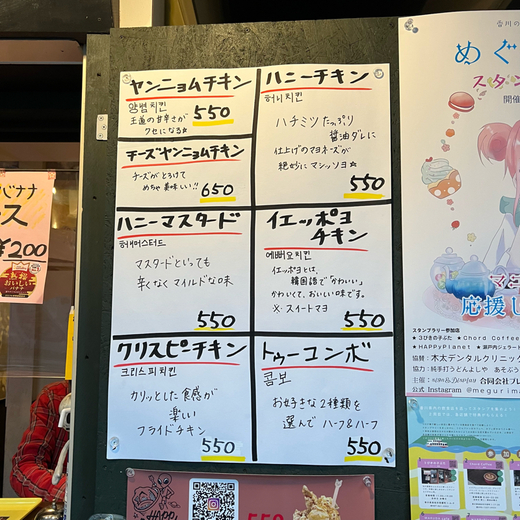 ヤンニョムチキン
양념치킨
王道の甘辛さが
クセになる☆
550
チーズヤンニョムチキン
チーズがとろけて
めちゃ美味しい!!
650
ハニーマスタード
허니머스터드
マスタードといっても
辛くなくマイルドな味
550
クリスピーチキン
크리스피치킨
カリッとした食感が
楽しい
フライドチキン
550
ハニーチキン
허니치킨
ハチミツたっぷり
醤油ダレに
仕上げのマヨネーズが
絶妙にマシッソヨ☆
550
イエッポヨ
チキン
예뻐요치킨
イエッポヨとは、
韓国語で「かわいい」
かわいくて、おいしい味です。
※スイートマヨ
550
トゥーコンボ
콤보
お好きな2種類を
選んで ハーフ&ハーフ
550
バナナ
ース
¥200
おいしい
バナナ
HAPP
550
めぐ
スタン
開催
マニ
応援し
スタンプラリー参加店
★3びきの子ぶた ★Chord Coffee
★HAPPyPlanet ★瀬戸内ジェラート
協賛：木太デンタルクリニック
協力：純手打うどんよしや あそぶう
主催：
合同会社プレ
公式 Instagram @megurima